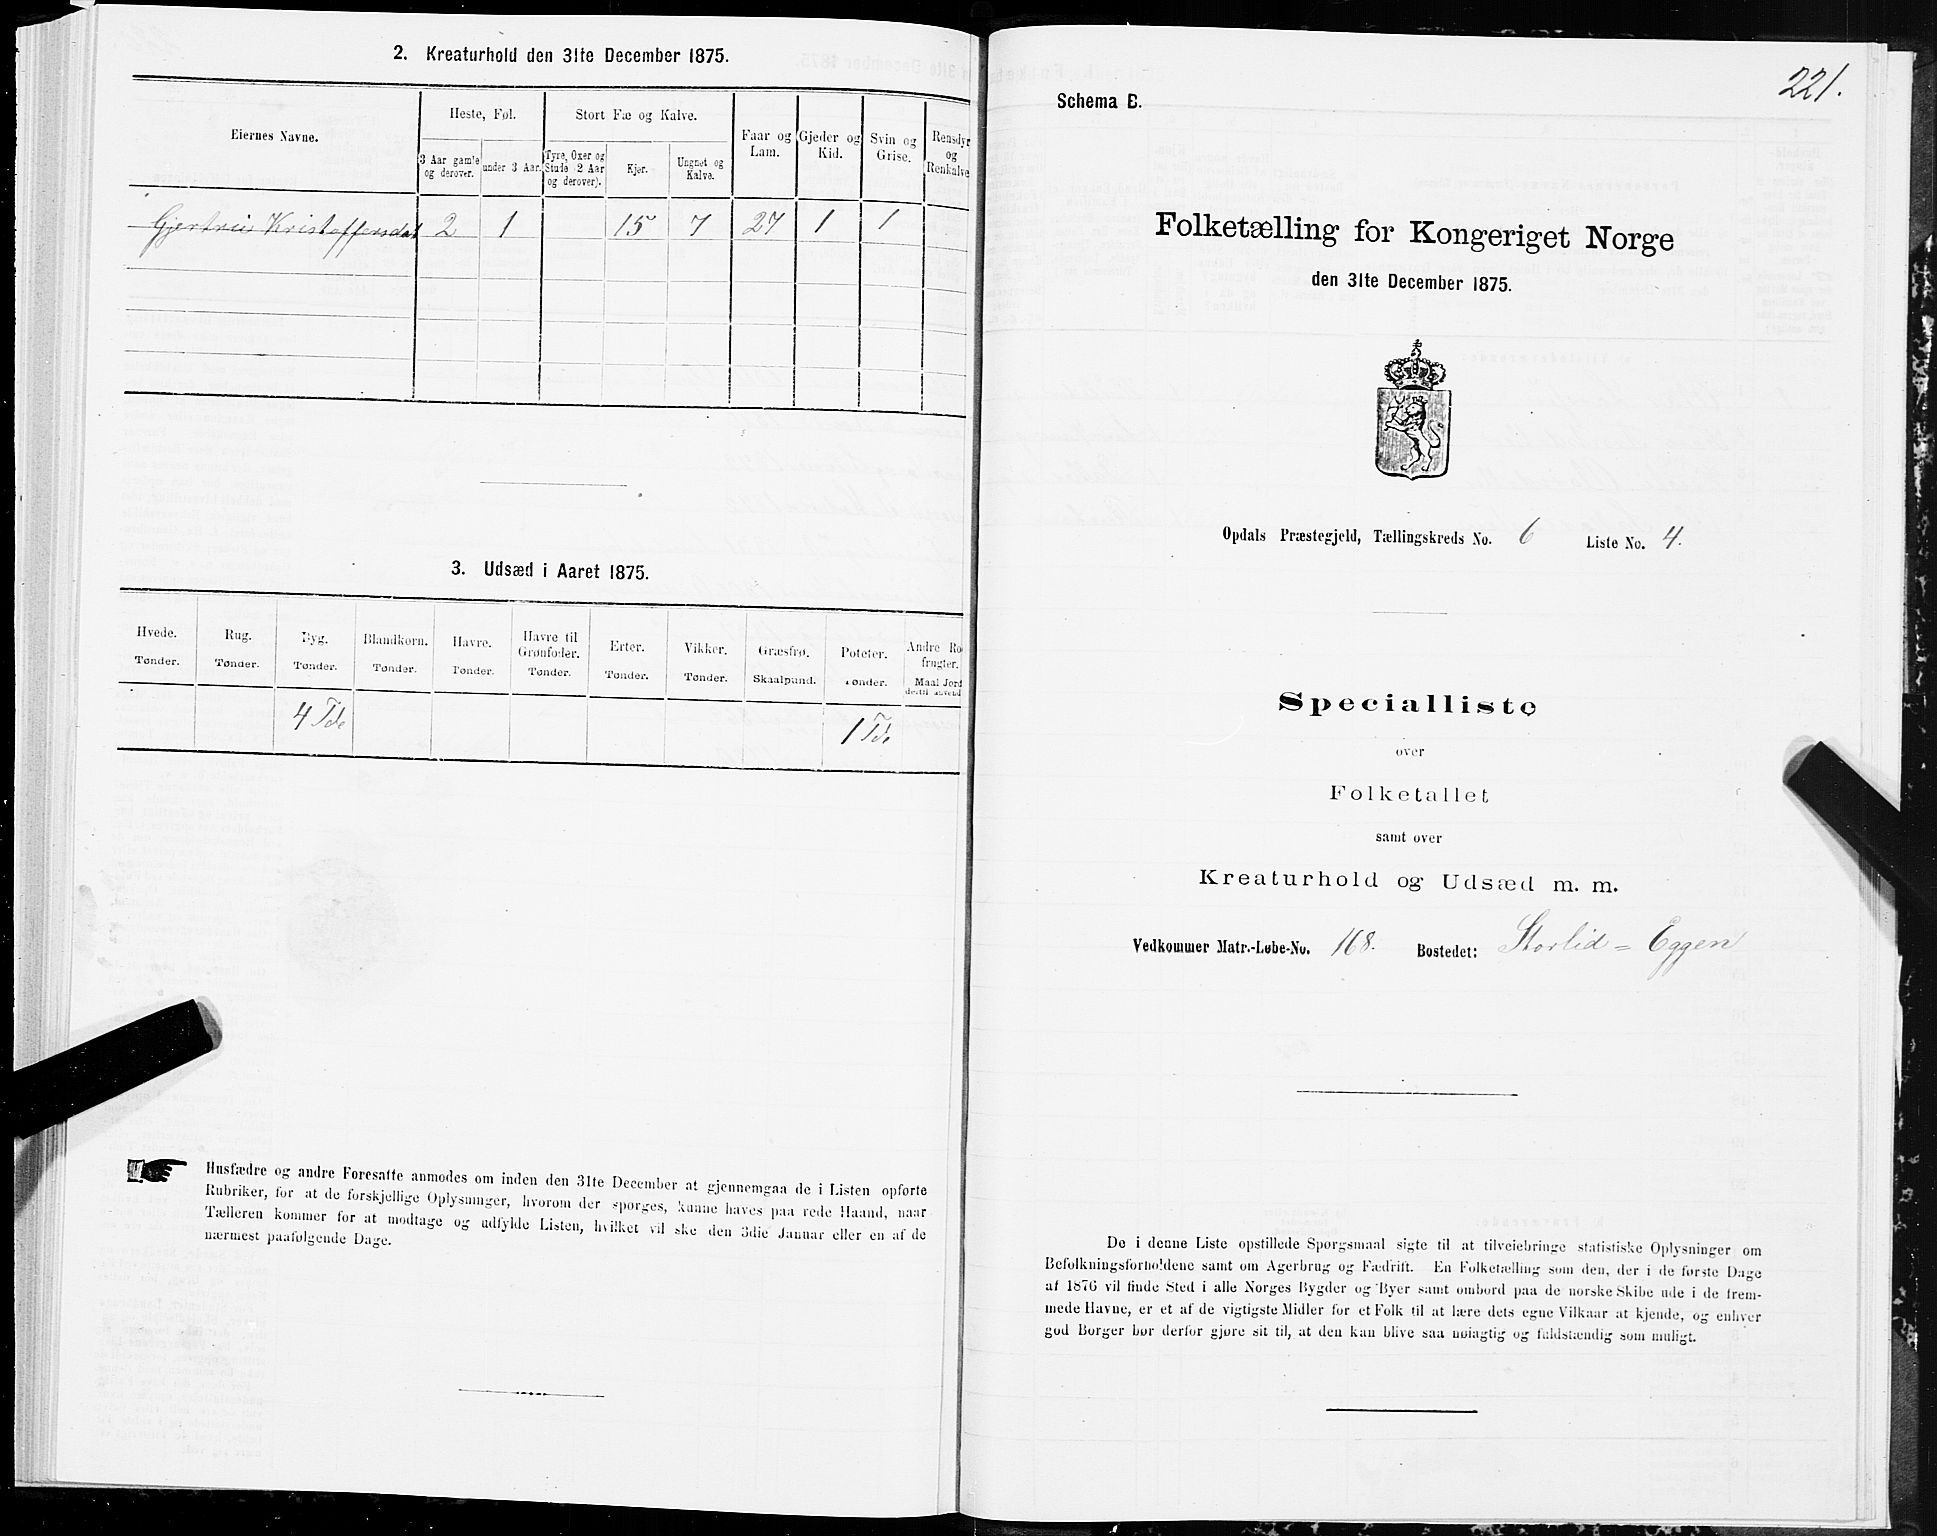 2. Kreaturhold den 31te December 1875.
Eiernes Navne.
Heste, Føl.
Stort Fæ og Kalve.
Faar og Lam.
Gjeder og Kid.
Svin og Grise.
Rensdyr og Renkalve
3 Aar gamle og derover.
under 3 Aar.
Tyre, Oxer og Stude (2 Aar og derover).
Kjør.
Ungnøt og Kalve.
Gjertrud Kristoffersdat 2 1 15 7 27 1 1
3. Udsæd i Aaret 1875.
Hvede. Rug. Byg. Blandkorn. Havre. Havre til Grønfoder. Erter. Vikker. Græsfrø. Poteter. Andre Ro frugter.
Tønder. Tønder. Tønder. Tønder. Tønder. Tønder. Tønder. Tønder. Skaalpund. Tønder. Maal Jord
4 Tde 1 Tde
Husfædre og andre Foresatte anmodes om inden den 31te December at gjennemgaa de i Listen opførte
Rubriker, for at de forskjellige Oplysninger, hvorom der spørges, kunne haves paa rede Haand, naar
Tælleren kommer for at modtage og udfylde Listen, hvilket vil ske den 3die Januar eller en af de
nærmest paafølgende Dage.
221.
Schema B.
Folketælling for Kongeriget Norge
den 31te December 1875.
Opdals Præstegjeld, Tællingskreds No. 6 Liste No. 4.
Specialliste
over
Folketallet
samt over
Kreaturhold og Udsæd m. m.
Vedkommer Matr.-Løbe-No. 168. Bostedet: Storlid = Eggen
De i denne Liste opstillede Spørgsmaal sigte til at tilveiebringe statistiske Oplysninger om
Befolkningsforholdene samt om Agerbrug og Fædrift. En Folketælling som den, der i de første Dage
af 1876 vil finde Sted i alle Norges Bygder og Byer samt ombord paa de norske Skibe ude i de frem-
mede Havne, er et af de vigtigste Midler for et Folk til at lære dets egne Vilkaar at kjende, og enhver
god Borger bør derfor gjøre sit til, at den kan blive saa nøiagtig og fuldstændig som muligt.